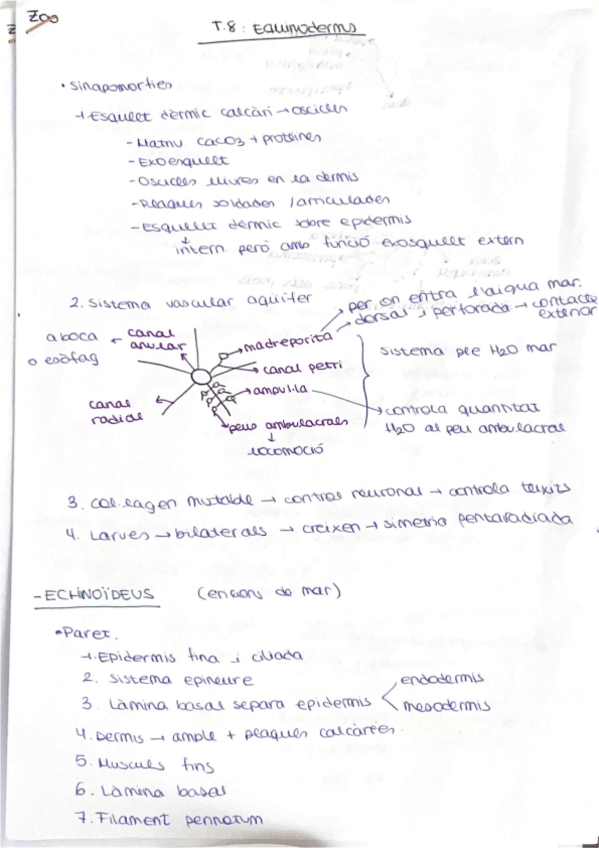 Zoo
T.8: Equinoderms
• Sinapomorfies
1. Esquelet dèrmic calcàri → oscicles
- Matriu CaCO3 + proteines
- Exoesquelet
- Oscicles lliures en la dermis
- Plaques soldades / articulades
- Esquelet dérmic sobre epidermis
↓
intern però amb funció exosquelet extern
2. Sistema vascular aqüífer
per on entra l'aigua mar.
dorsal i perforada → contacte exterior
a boca o esòfag ← canal anular
madreporita
canal petri
ampul·la
canal radial
peus ambulacrals
↓
locomoció
sistema ple H2O mar
controla quantitat H2O al peu ambulacral
3. Col·lagen mutable → control neuronal → controla teixits
4. Larves → bilaterals → creixen → simetria pentaradiada
- ECHINOÏDEUS (ericons de mar)
• Paret.
1. Epidermis fina i ciliada
2. Sistema epineure
3. Làmina basal separa epidermis
endodermis
mesodermis
4. Dermis → ample + plaques calcàries.
5. Muscules fins
6. Làmina basal
7. Filament